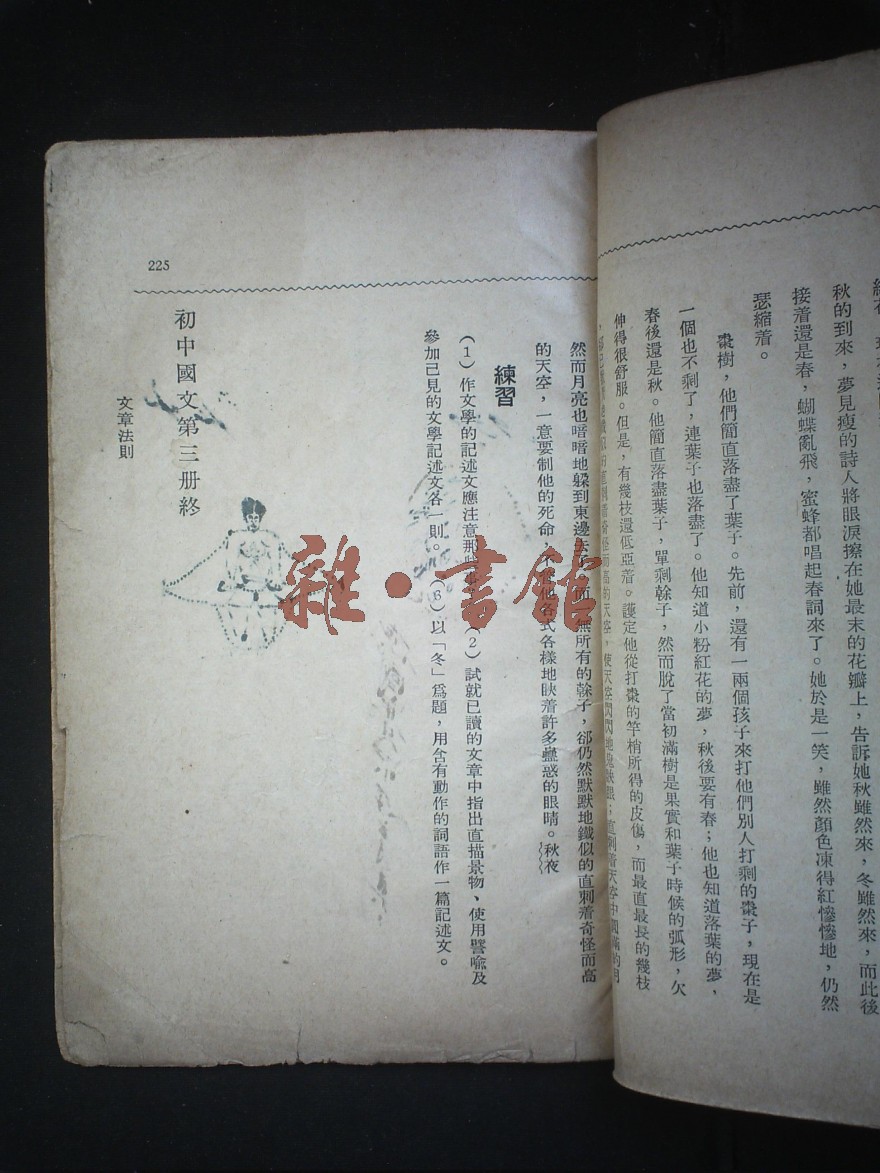 秋的到來,夢見瘦的詩人將眼淚擦在她最末的花瓣上,告訴她秋雖然來,冬雖然來,而此後
接着還是春,蝴蝶亂飛,蜜蜂都唱起春詞來了。她於是一笑,雖然顏色凍得紅慘慘地,仍然
瑟縮着。
棗樹,他們簡直落盡了葉子。先前,還有一兩個孩子來打他們別人打剩的棗子,現在是
一個也不剩了,連葉子也落盡了。他知道小粉紅花的夢,秋後要有春;他也知道落葉的夢,
春後還是秋。他簡直落盡葉子,單剩榦子,然而脫了當初滿樹是果實和葉子時候的弧形,欠
伸得很舒服。但是,有幾枝還低亞着。護定他從打棗的竿梢所得的皮傷,而最直最長的幾枝
奇怪而高的天空,使天空閃閃地;直刺着天空中圓滿的月
然而月亮也暗暗地躱到東邊去了。而無所有的榦子,郤仍然默默地鐵似的直刺着奇怪而高
的天空,一意要制他的死命,他各式各樣地䀹着許多蠱惑的眼睛。秋夜
練習
(1)作文學的記述文應注意那些 (2)試就已讀的文章中指出直描景物、使用譬喩及
參加己見的文學記述文各一則。 (3)以「冬」爲題,用含有動作的詞語作一篇記述文。
初中國文第三册終
文章法則
225
雜·書館